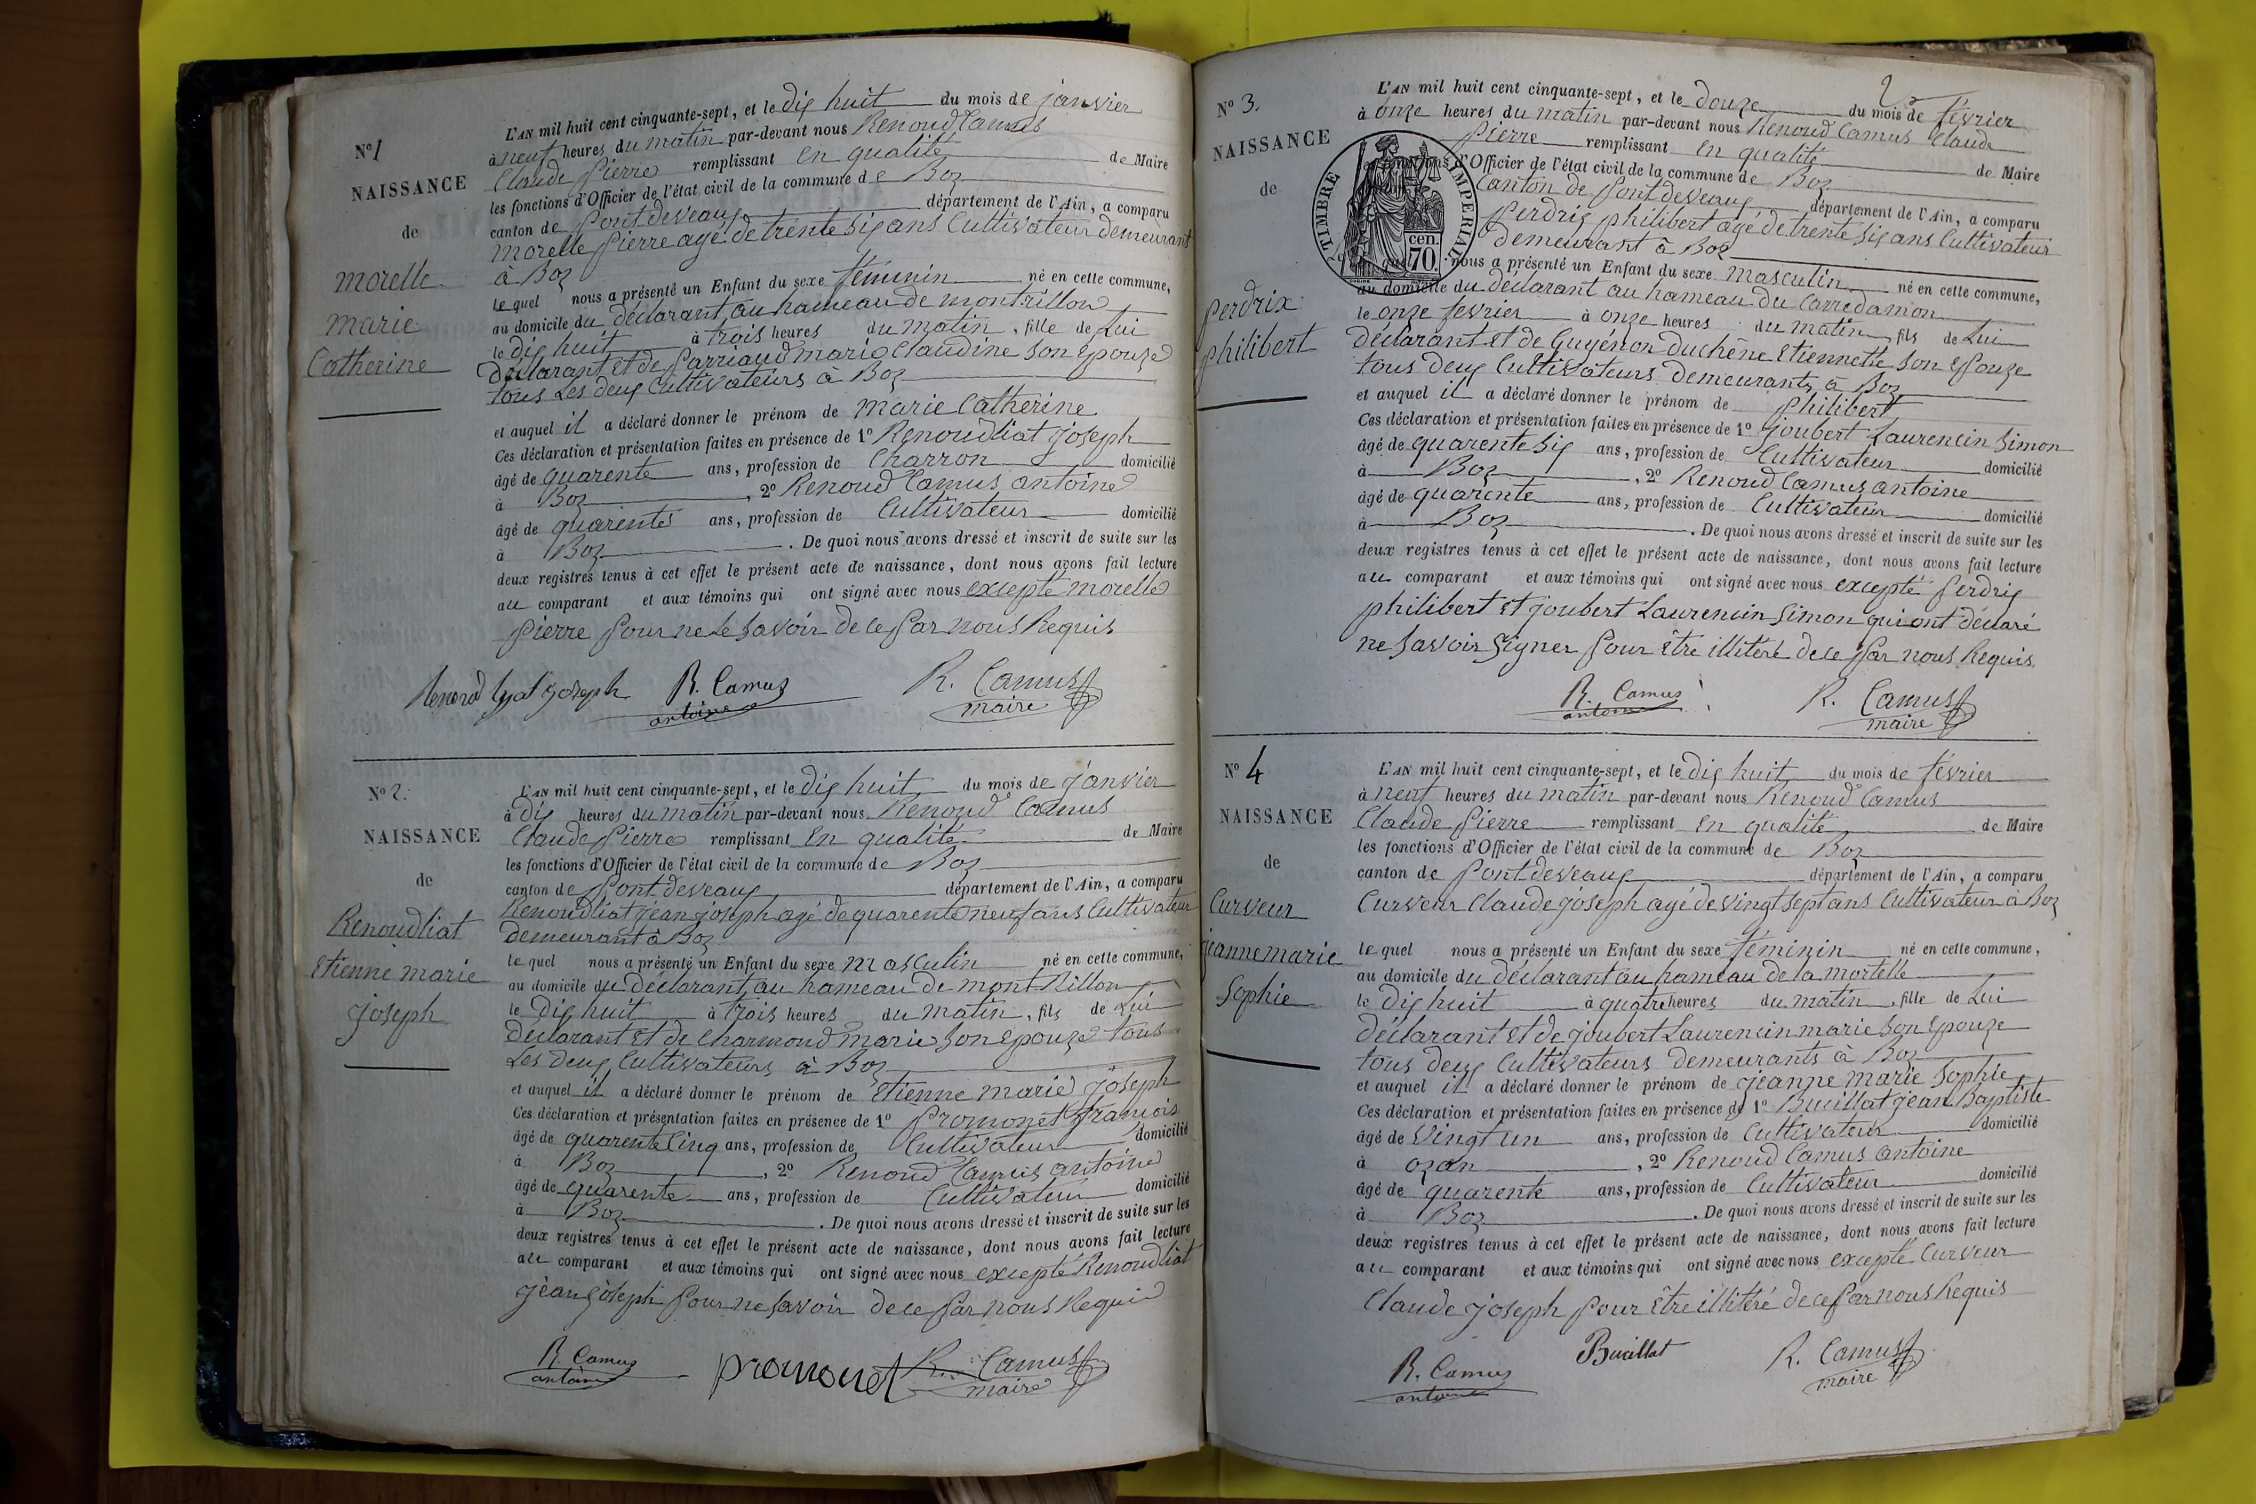 N° 1
NAISSANCE
de
morelle
marie
Catherine
L'AN mil huit cent cinquante-sept, et le dix huit du mois de janvier
à neuf heures du matin par-devant nous Renoud Camus
Claude Pierre remplissant en qualité de Maire
les fonctions d'Officier de l'état civil de la commune de Boz
canton de Pontdevaux département de l'Ain, a comparu
morelle Pierre agé de trente six ans Cultivateur demeurant
à Boz
le quel nous a présenté un Enfant du sexe féminin né en cette commune,
au domicile du déclarant au hameau de montrillon
le dix huit à trois heures du matin, fille de Lui
déclarant et de Parriaud marie Claudine son Epouze
tous Les deux Cultivateurs à Boz
et auquel il a déclaré donner le prénom de marie Catherine
Ces déclaration et présentation faites en présence de 1° Renoudliat joseph
âgé de quarente ans, profession de Charron domicilié
à Boz, 2° Renoud Camus antoine
âgé de quarentes ans, profession de Cultivateur domicilié
à Boz. De quoi nous avons dressé et inscrit de suite sur les
deux registres tenus à cet effet le présent acte de naissance, dont nous avons fait lecture
au comparant et aux témoins qui ont signé avec nous excepté morelle
Pierre Pour ne Le Savoir de ce Par nous Requis
Renoud lyat joseph R. Camus antoine R. Camus maire
N° 2.
NAISSANCE
de
Renoudliat
Etienne marie
joseph
L'AN mil huit cent cinquante-sept, et le dix huit du mois de janvier
à dix heures du matin par-devant nous Renoud Camus
Claude Pierre remplissant en qualité de Maire
les fonctions d'Officier de l'état civil de la commune de Boz
canton de Pontdevaux département de l'Ain, a comparu
Renoudliat jean joseph agé de quarente neuf ans Cultivateur
demeurant à Boz
le quel nous a présenté un Enfant du sexe masculin né en cette commune,
au domicile du déclarant au hameau de mont Rillon
le dix huit à trois heures du matin, fils de Lui
déclarant et de Charmond marie Son Epouze tous
Les deux Cultivateurs à Boz
et auquel il a déclaré donner le prénom de Etienne marie joseph
Ces déclaration et présentation faites en présence de 1° Promonet françois
âgé de quarente Cinq ans, profession de Cultivateur domicilié
à Boz, 2° Renoud Camus antoine
âgé de quarente ans, profession de Cultivateur domicilié
à Boz. De quoi nous avons dressé et inscrit de suite sur les
deux registres tenus à cet effet le présent acte de naissance, dont nous avons fait lecture
au comparant et aux témoins qui ont signé avec nous excepté Renoudliat
jean joseph Pour ne Savoir de ce Par nous Requis
R. Camus antoine promonet R. Camus maire
2
N° 3.
NAISSANCE
de
Perdrix
Philibert
TIMBRE IMPERIAL
70 cen.
L'AN mil huit cent cinquante-sept, et le douze du mois de février
à onze heures du matin par-devant nous Renoud Camus Claude
Pierre remplissant en qualité de Maire
les fonctions d'Officier de l'état civil de la commune de Boz
Canton de Pontdevaux département de l'Ain, a comparu
Perdrix Philibert agé de trente six ans Cultivateur
demeurant à Boz
nous a présenté un Enfant du sexe masculin né en cette commune,
au domicile du déclarant au hameau du Carredamon
le onze fevrier à onze heures du matin, fils de Lui
déclarant et de Guyénon Duchéne Etiennette son Epouze
tous deux Cultivateurs demeurants à Boz
et auquel il a déclaré donner le prénom de Philibert
Ces déclaration et présentation faites en présence de 1° joubert Laurencin Simon
âgé de quarente six ans, profession de Cultivateur domicilié
à Boz, 2° Renoud Camus antoine
âgé de quarente ans, profession de Cultivateur domicilié
à Boz. De quoi nous avons dressé et inscrit de suite sur les
deux registres tenus à cet effet le présent acte de naissance, dont nous avons fait lecture
au comparant et aux témoins qui ont signé avec nous excepté Perdrix
Philibert et joubert Laurencin Simon qui ont déclaré
ne Savoir Signer Pour Être illitéré de ce Par nous Requis
R. Camus antoine R. Camus maire
N° 4
NAISSANCE
de
Curveur
jeanne marie
Sophie
L'AN mil huit cent cinquante-sept, et le dix huit du mois de février
à neuf heures du matin par-devant nous Renoud Camus
Claude Pierre remplissant en qualité de Maire
les fonctions d'Officier de l'état civil de la commune de Boz
canton de Pontdevaux département de l'Ain, a comparu
Curveur Claude joseph agé de vingt sept ans Cultivateur à Boz
le quel nous a présenté un Enfant du sexe féminin né en cette commune,
au domicile du déclarant au hameau de la mortelle
le dix huit à quatre heures du matin, fille de Lui
déclarant et de joubert Laurencin marie Son Epouze
tous deux Cultivateurs demeurants à Boz
et auquel il a déclaré donner le prénom de jeanne marie Sophie
Ces déclaration et présentation faites en présence de 1° Buillat jean Baptiste
âgé de vingt un ans, profession de Cultivateur domicilié
à ozan, 2° Renoud Camus antoine
âgé de quarente ans, profession de Cultivateur domicilié
à Boz. De quoi nous avons dressé et inscrit de suite sur les
deux registres tenus à cet effet le présent acte de naissance, dont nous avons fait lecture
au comparant et aux témoins qui ont signé avec nous excepté Curveur
Claude joseph Pour Être illitéré de ce Par nous Requis
R. Camus antoine Buillat R. Camus maire